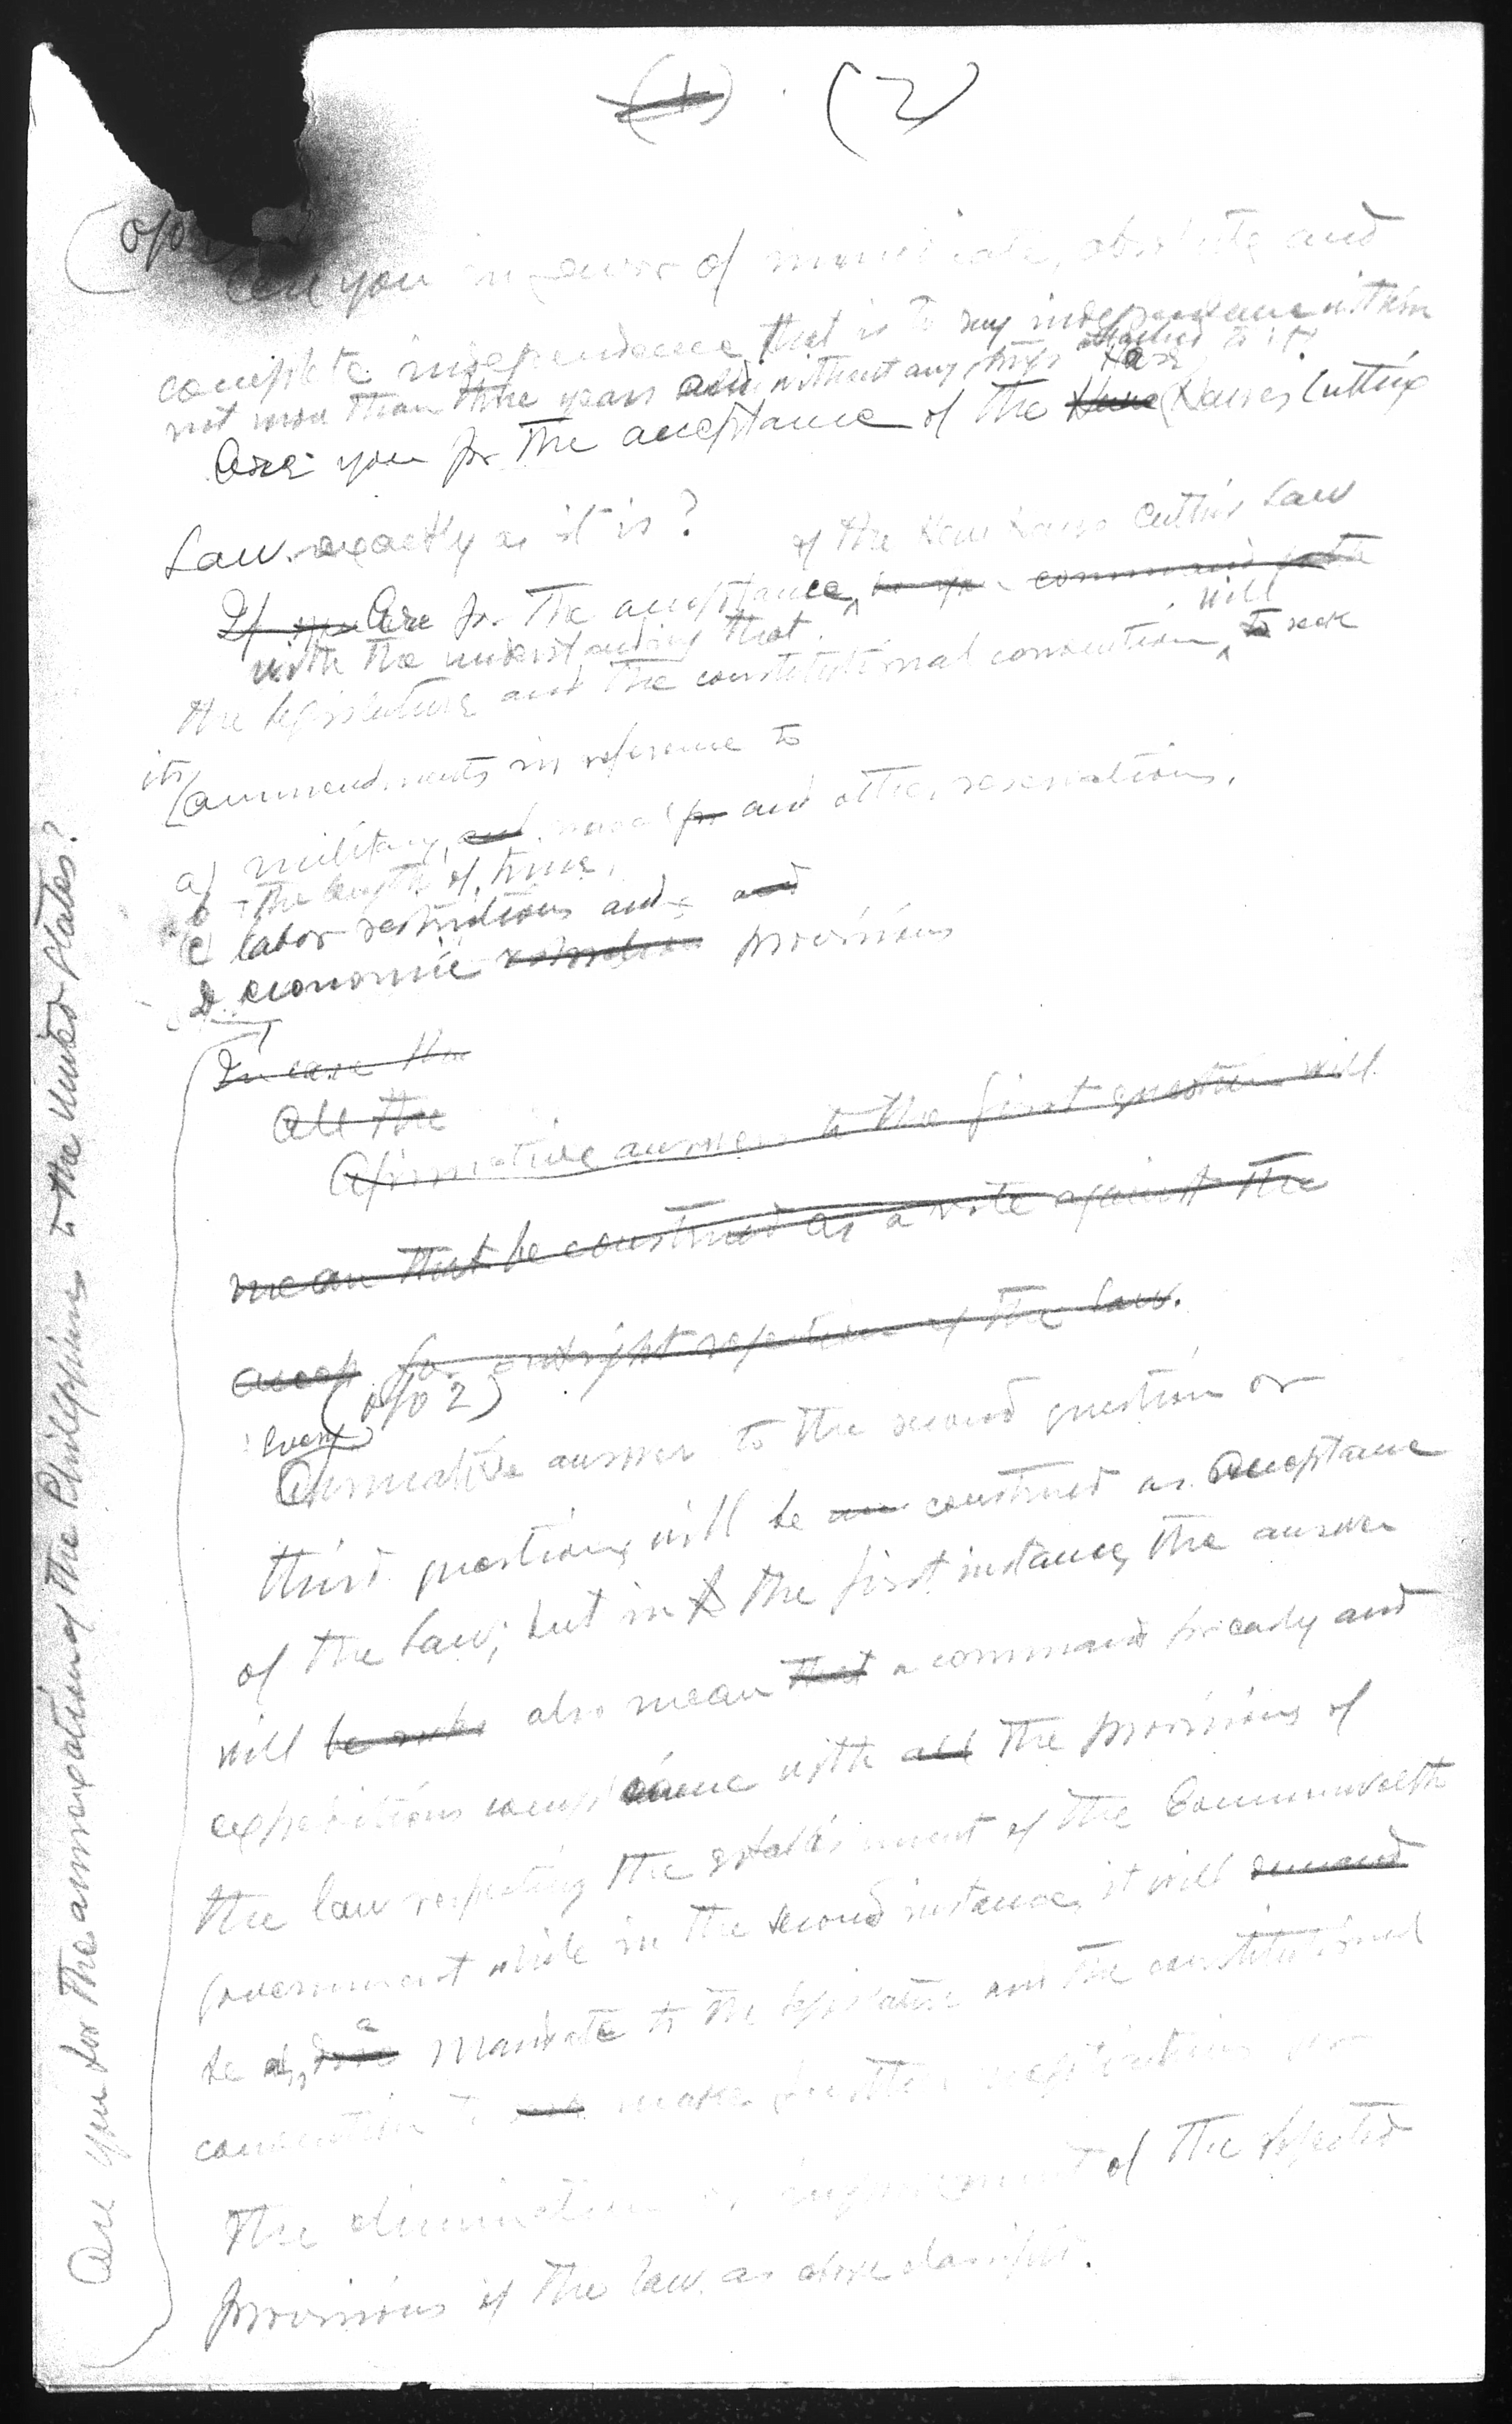 (1) (2)
Are you in favor of immediate, absolute and
complete independence that is to say independence within
not more than three years and without any strings attached to it?
Are you for the acceptance of the Hare Hawes Cutting
Law exactly as it is?
of the Hare Hawes Cutting Law
If you Are for the acceptance
with the understanding that will
the legislature and the constitutional convention to seek
its
ammendments in reference to
a) military, and naval for and other reservations.
b the length of time,
c labor restrictions and and
d economic restriction provisions
In case the
All the
Afirmative answer to the first question will
mean that be construed as a vote against the
accep for outright rejection of the law.
(o/o 2)
Every
Afirmative answer to the second question or
third question will be construed as Acceptance
of the Law; but in the first instance, the answer
will be also mean that a command and
expeditious compliance with all the provisions of
the law respecting the establisment of the Commonwealth
government while in the second instance, it will demand
be a mandate to the legislature and the constitutional
convention to seek make further negotiations for
the elimination or of the objected
provisions of the law as above classified.
Are you for the annexation of the Philippines to the United States?